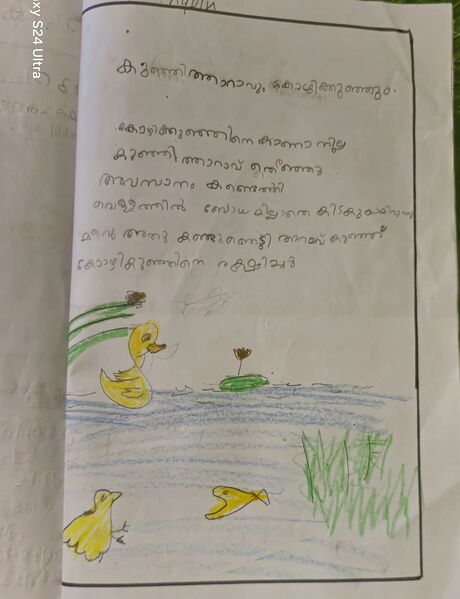 Galaxy S24 Ultra
കുഞ്ഞിത്താറാവും കോഴിക്കുഞ്ഞും.
കോഴിക്കുഞ്ഞിനെ കാണാനില്ല
കുഞ്ഞിത്താറാവ് തിരഞ്ഞു
അവസാനം കണ്ടെത്തി
വെള്ളത്തിൽ ബോധമില്ലാതെ കിടക്കുകയായിരുന്നു
അതു കണ്ടുഞെട്ടി താറാവ് കുഞ്ഞ്
കോഴികുഞ്ഞിനെ രക്ഷിച്ചു